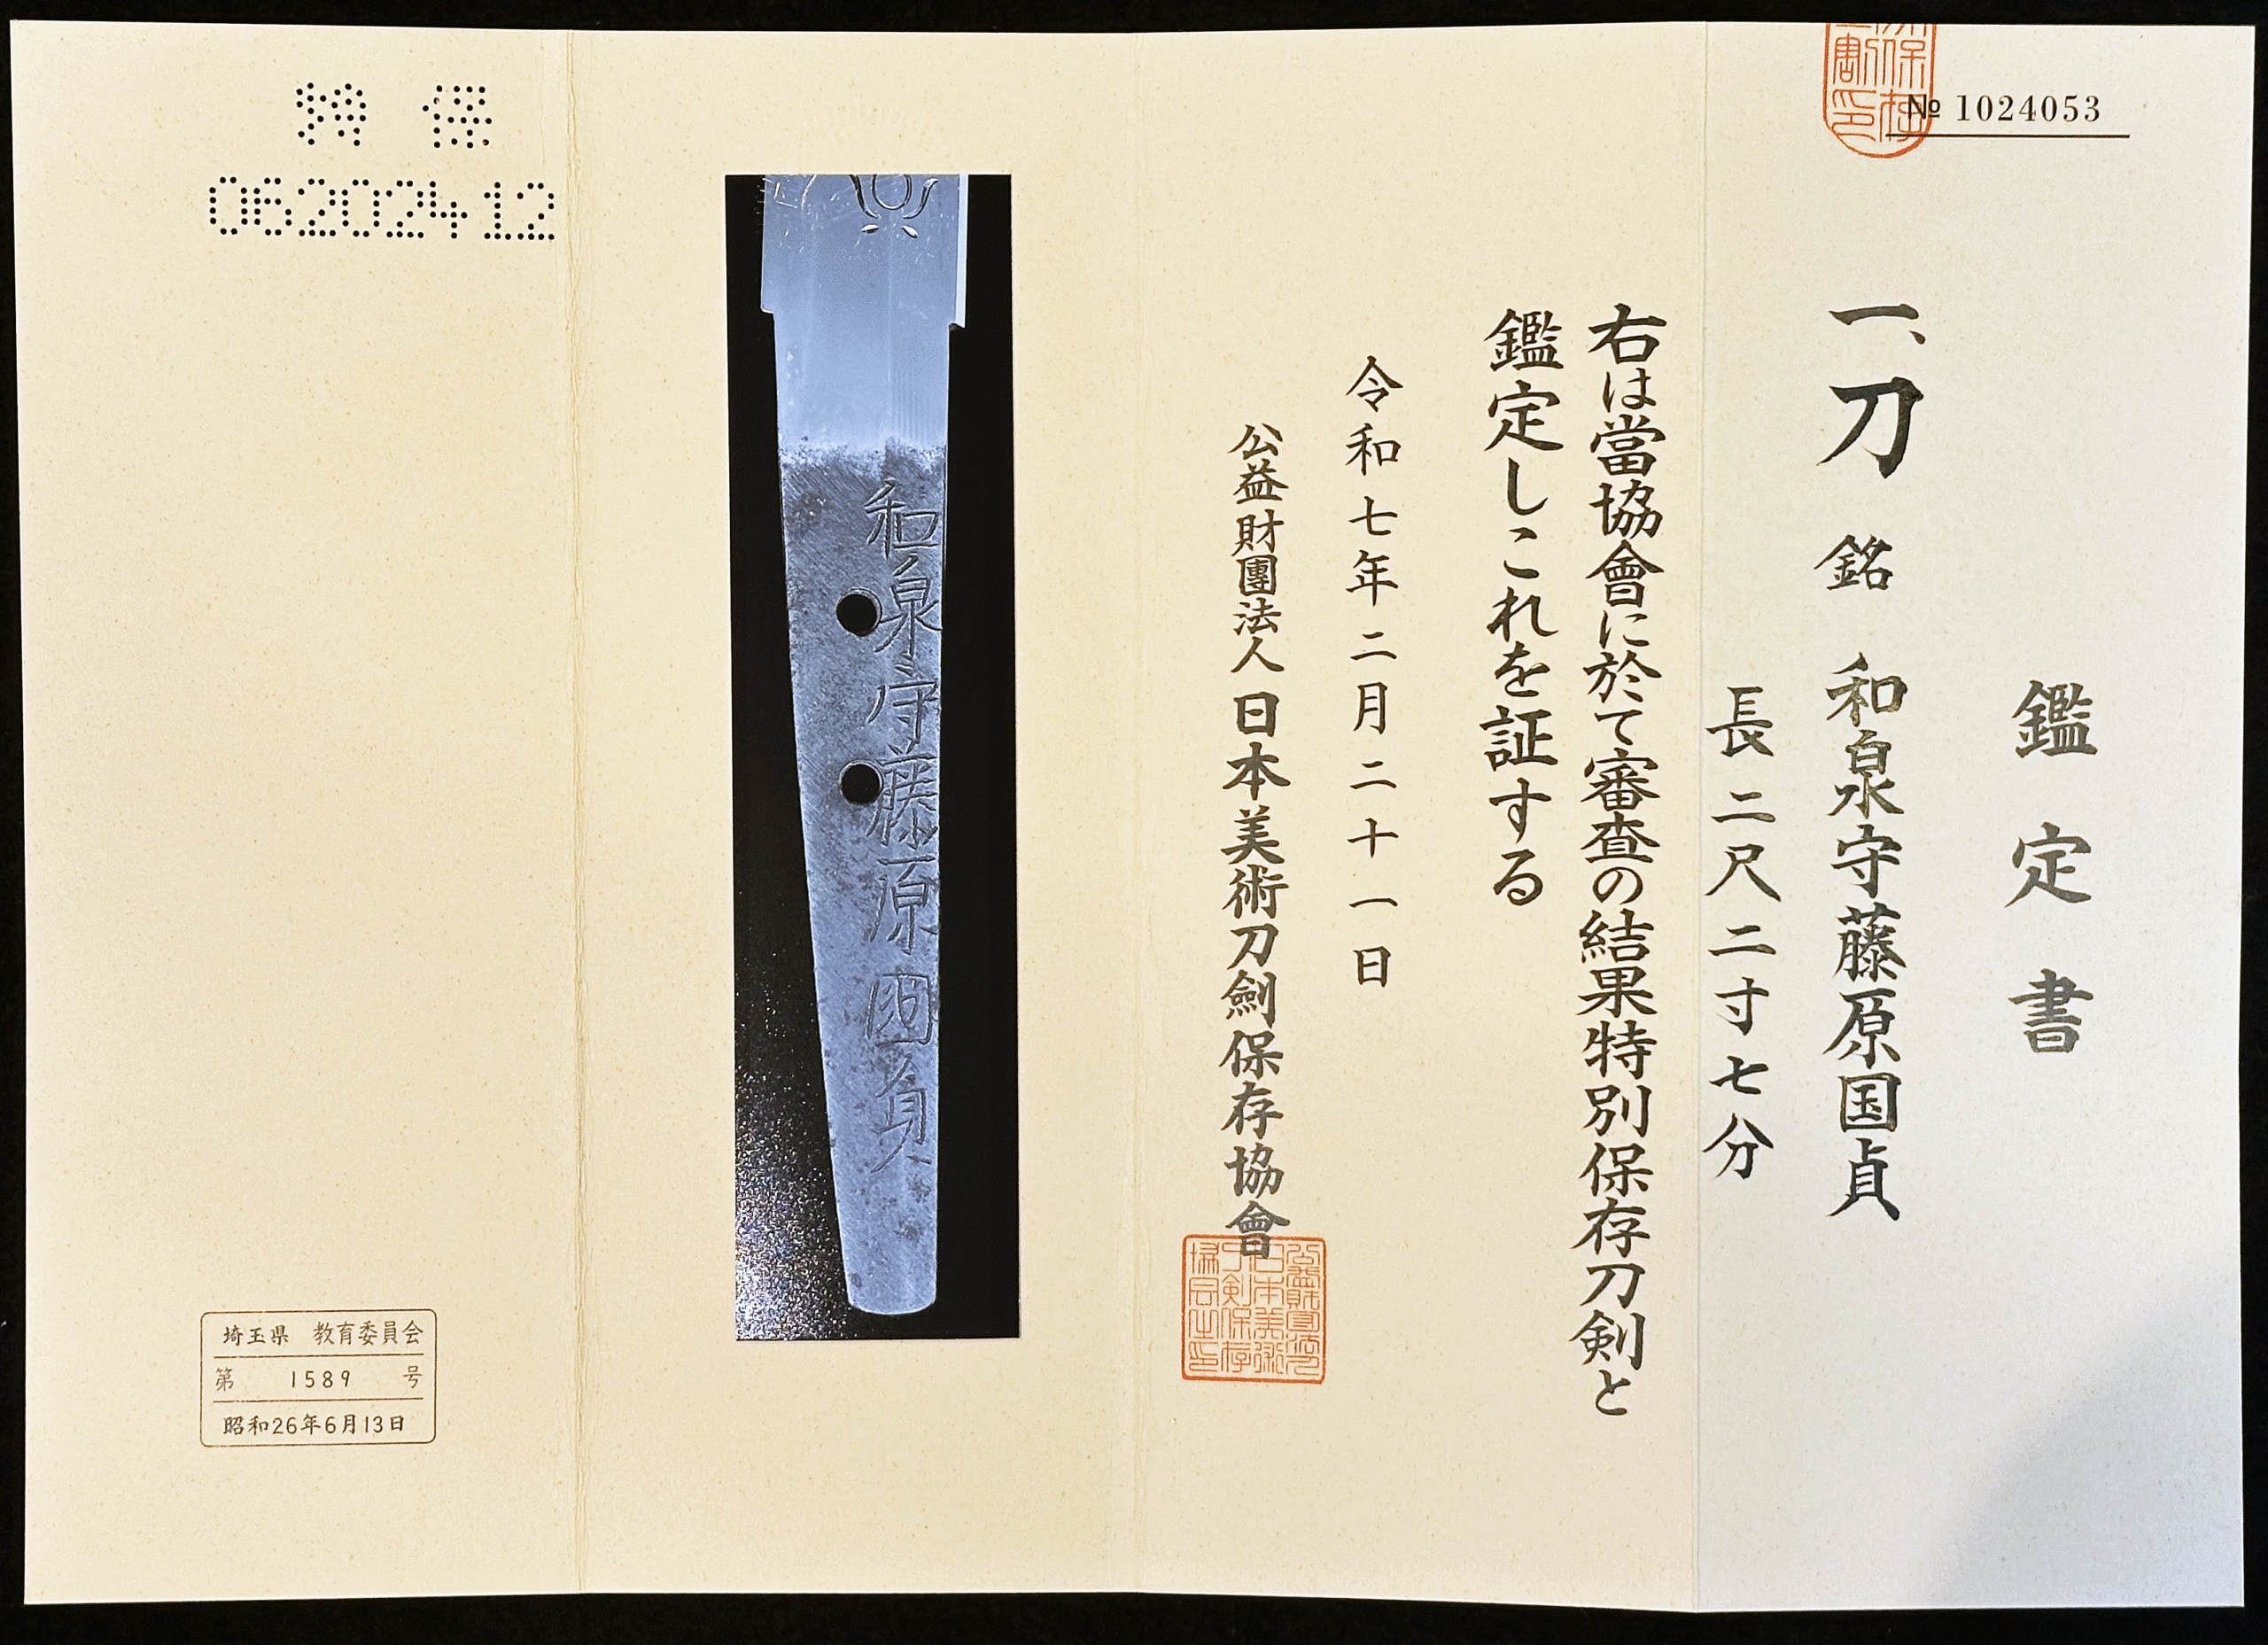 № 1024053
鑑定書
一、刀 銘 和泉守藤原国貞
長二尺二寸七分
右は當協會に於て審査の結果特別保存刀剣と
鑑定しこれを証する
令和七年二月二十一日
公益財團法人日本美術刀劍保存協會
和泉守藤原國貞
特 保
06202412
埼玉県 教育委員会
第 1589 号
昭和26年6月13日